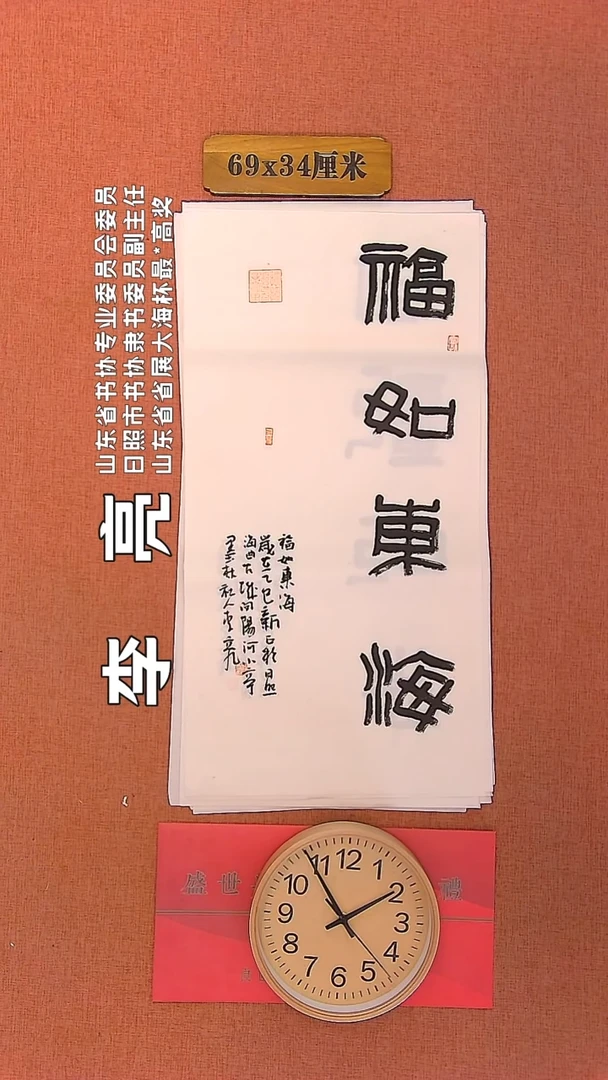 69x34厘米
山东省书协专业委员会委员
日照市书协隶书委员副主任
山东省省展大海杯最*高奖
李亮
福如東海
福如東海
歲在乙巳新正於日照
盛世
禮
12
1
2
3
4
5
6
7
8
9
10
11